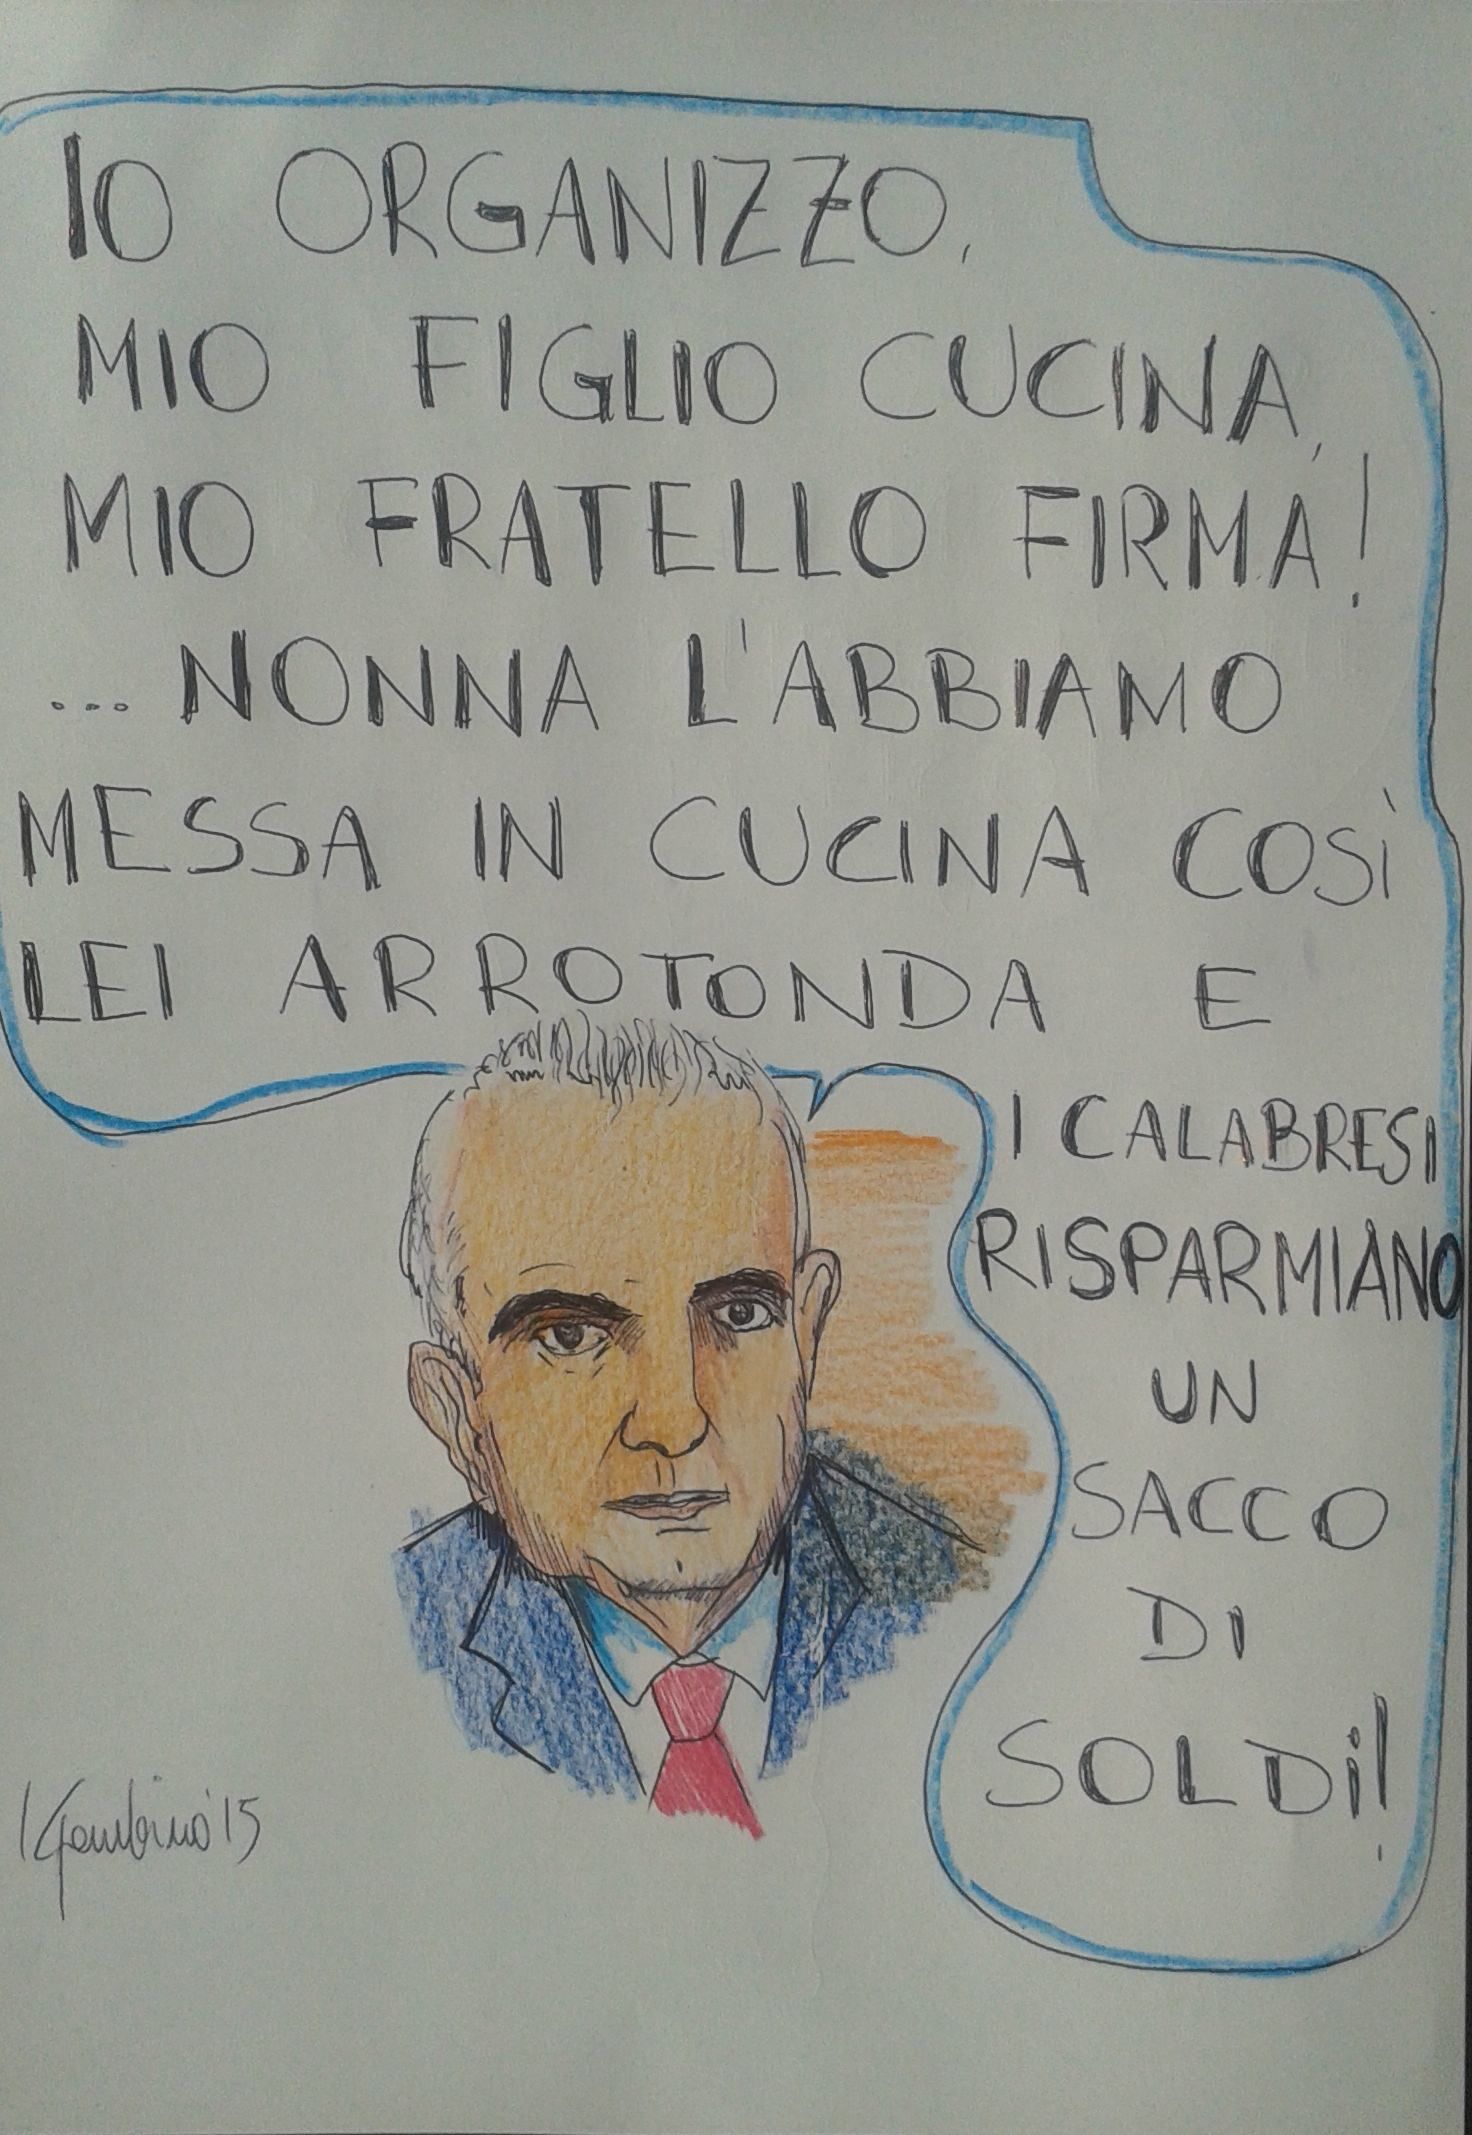 IO ORGANIZZO,
MIO FIGLIO CUCINA,
MIO FRATELLO FIRMA!
... NONNA L'ABBIAMO
MESSA IN CUCINA COSÌ
LEI ARROTONDA E
I CALABRESI
RISPARMIANO
UN
SACCO
DI
SOLDI!
Gambino '15